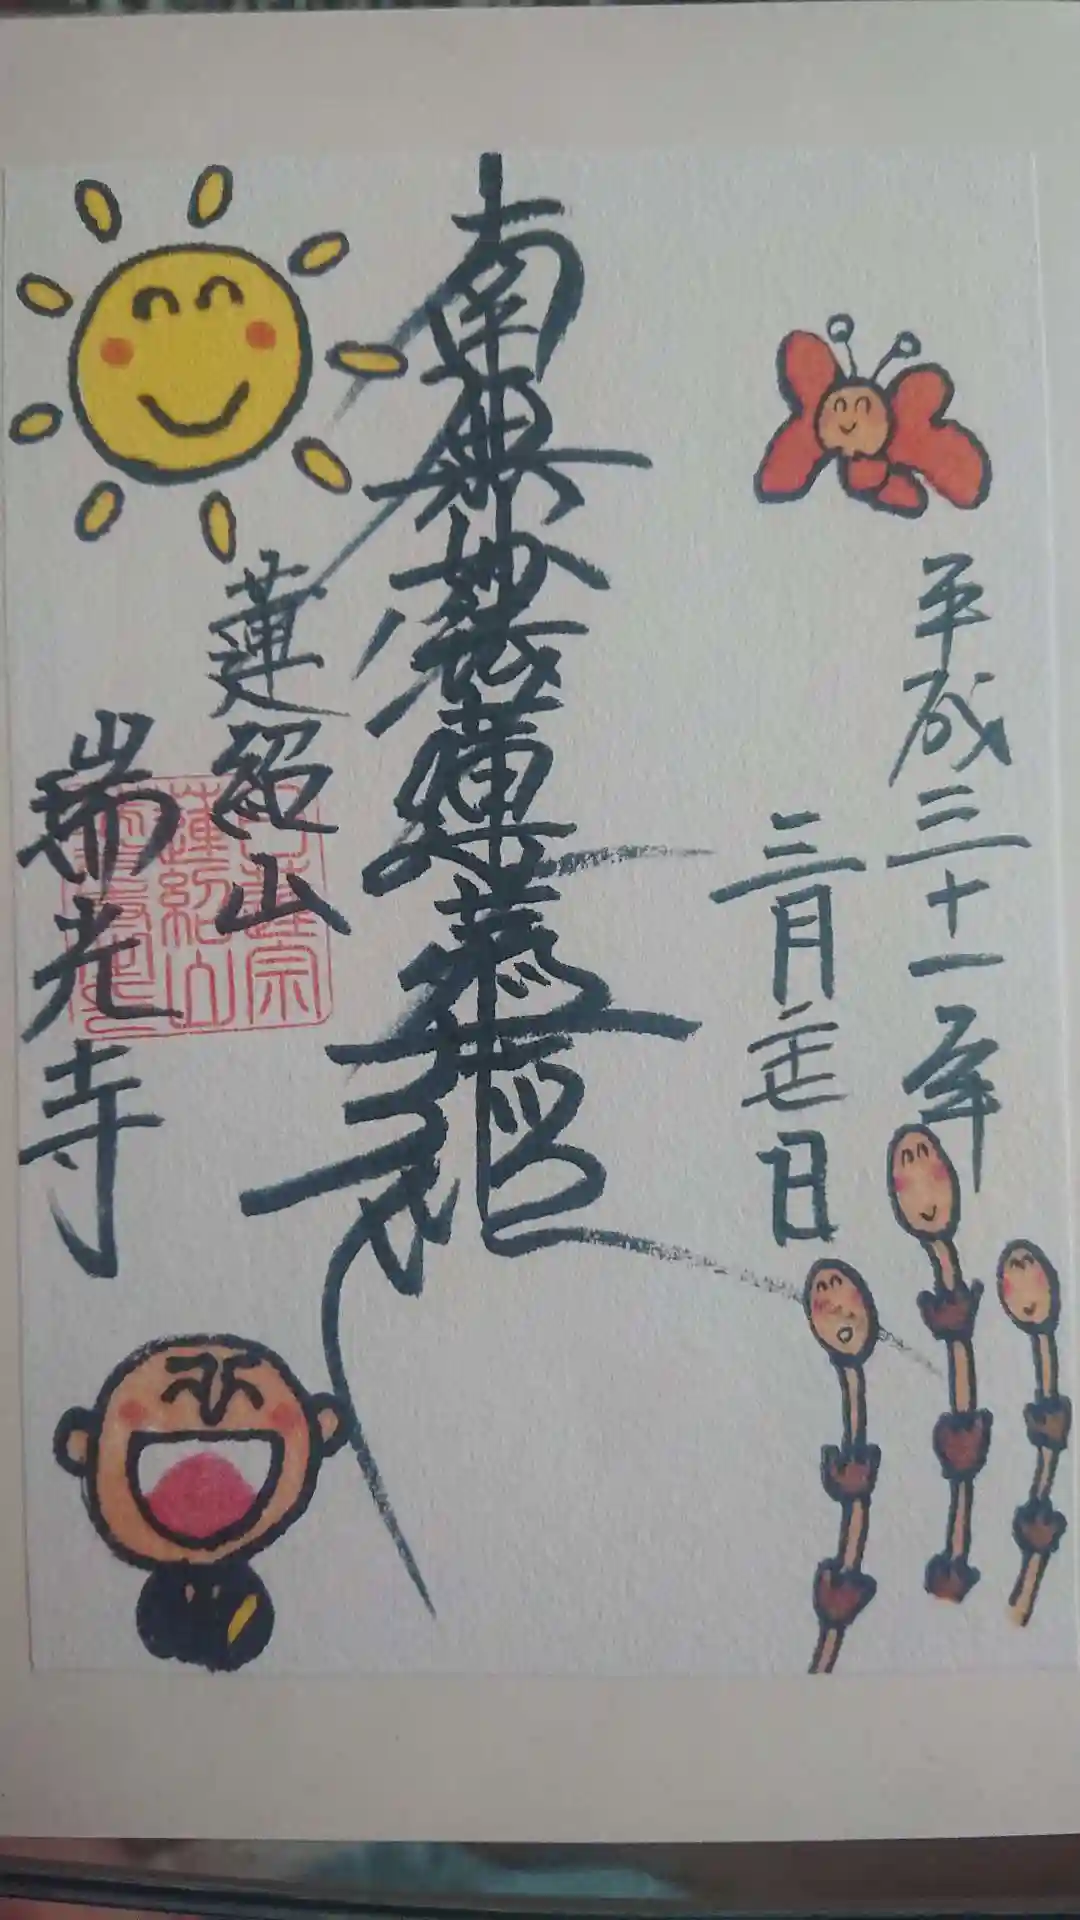 平成三十一年
三月 日
南無妙法蓮華経
蓮紹山
瑞光寺
日蓮宗
蓮紹山